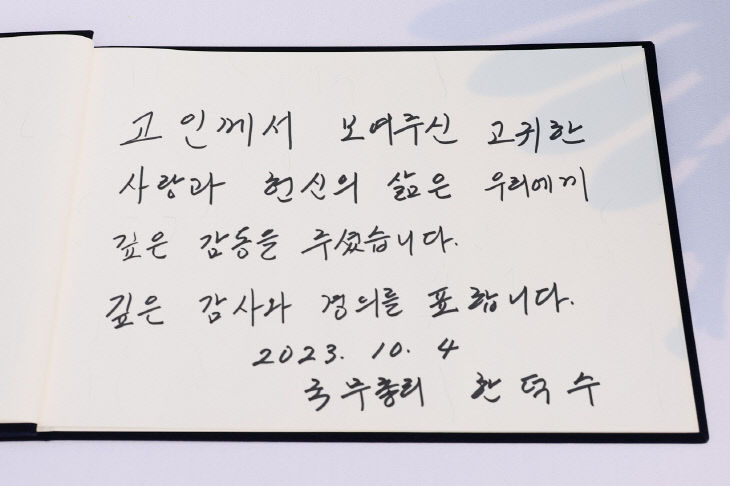 고인께서 보여주신 고귀한
사랑과 헌신의 삶은 우리에게
깊은 감동을 주셨습니다.
깊은 감사와 경의를 표합니다.
2023. 10. 4
국무총리 한덕수